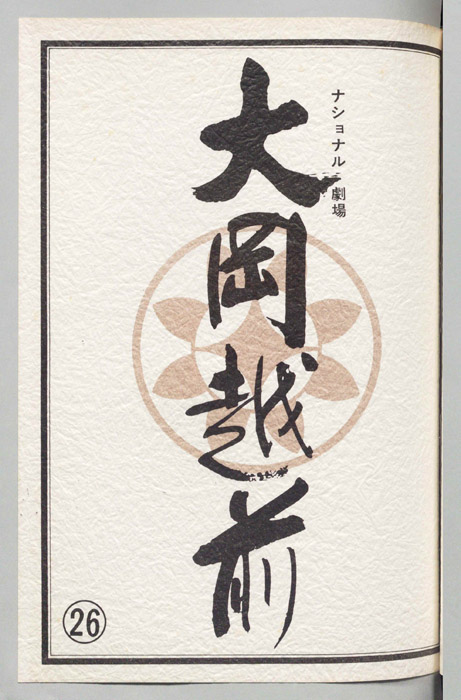 ナショナル劇場
大岡越前
26